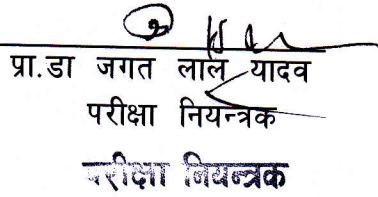 प्रा.डा जगत लाल यादव
परीक्षा नियन्त्रक
परीक्षा नियन्त्रक